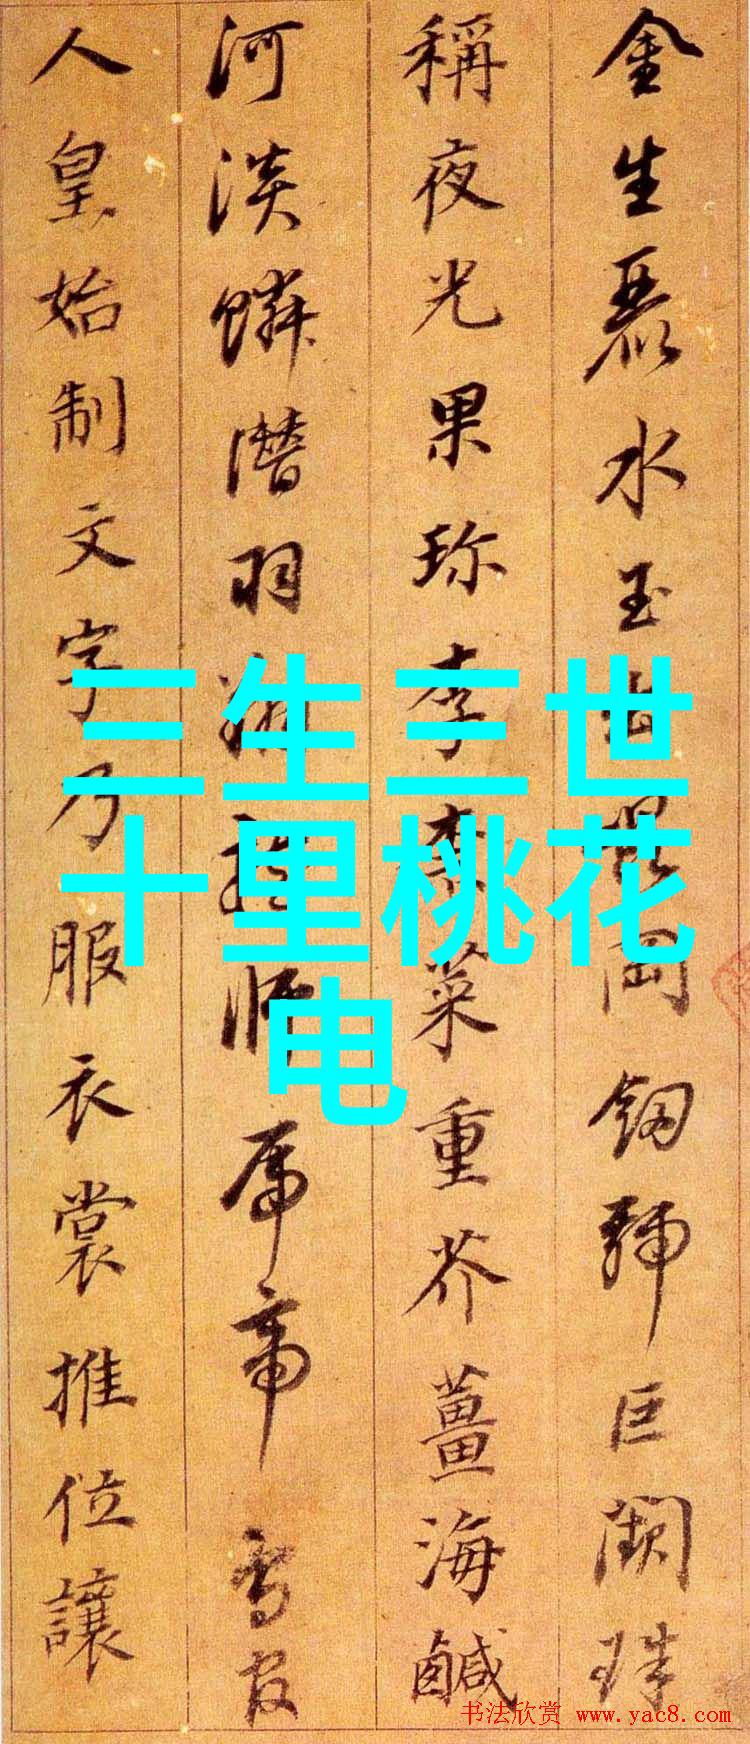 金生麗水玉出崑岡釰號巨闕珠
稱夜光果珍李柰菜重芥薑海鹹
河淡鱗潛羽翔龍師火帝鳥官
人皇始制文字乃服衣裳推位讓
三生三世
十里桃花
电
书法欣赏 www.yac8.com